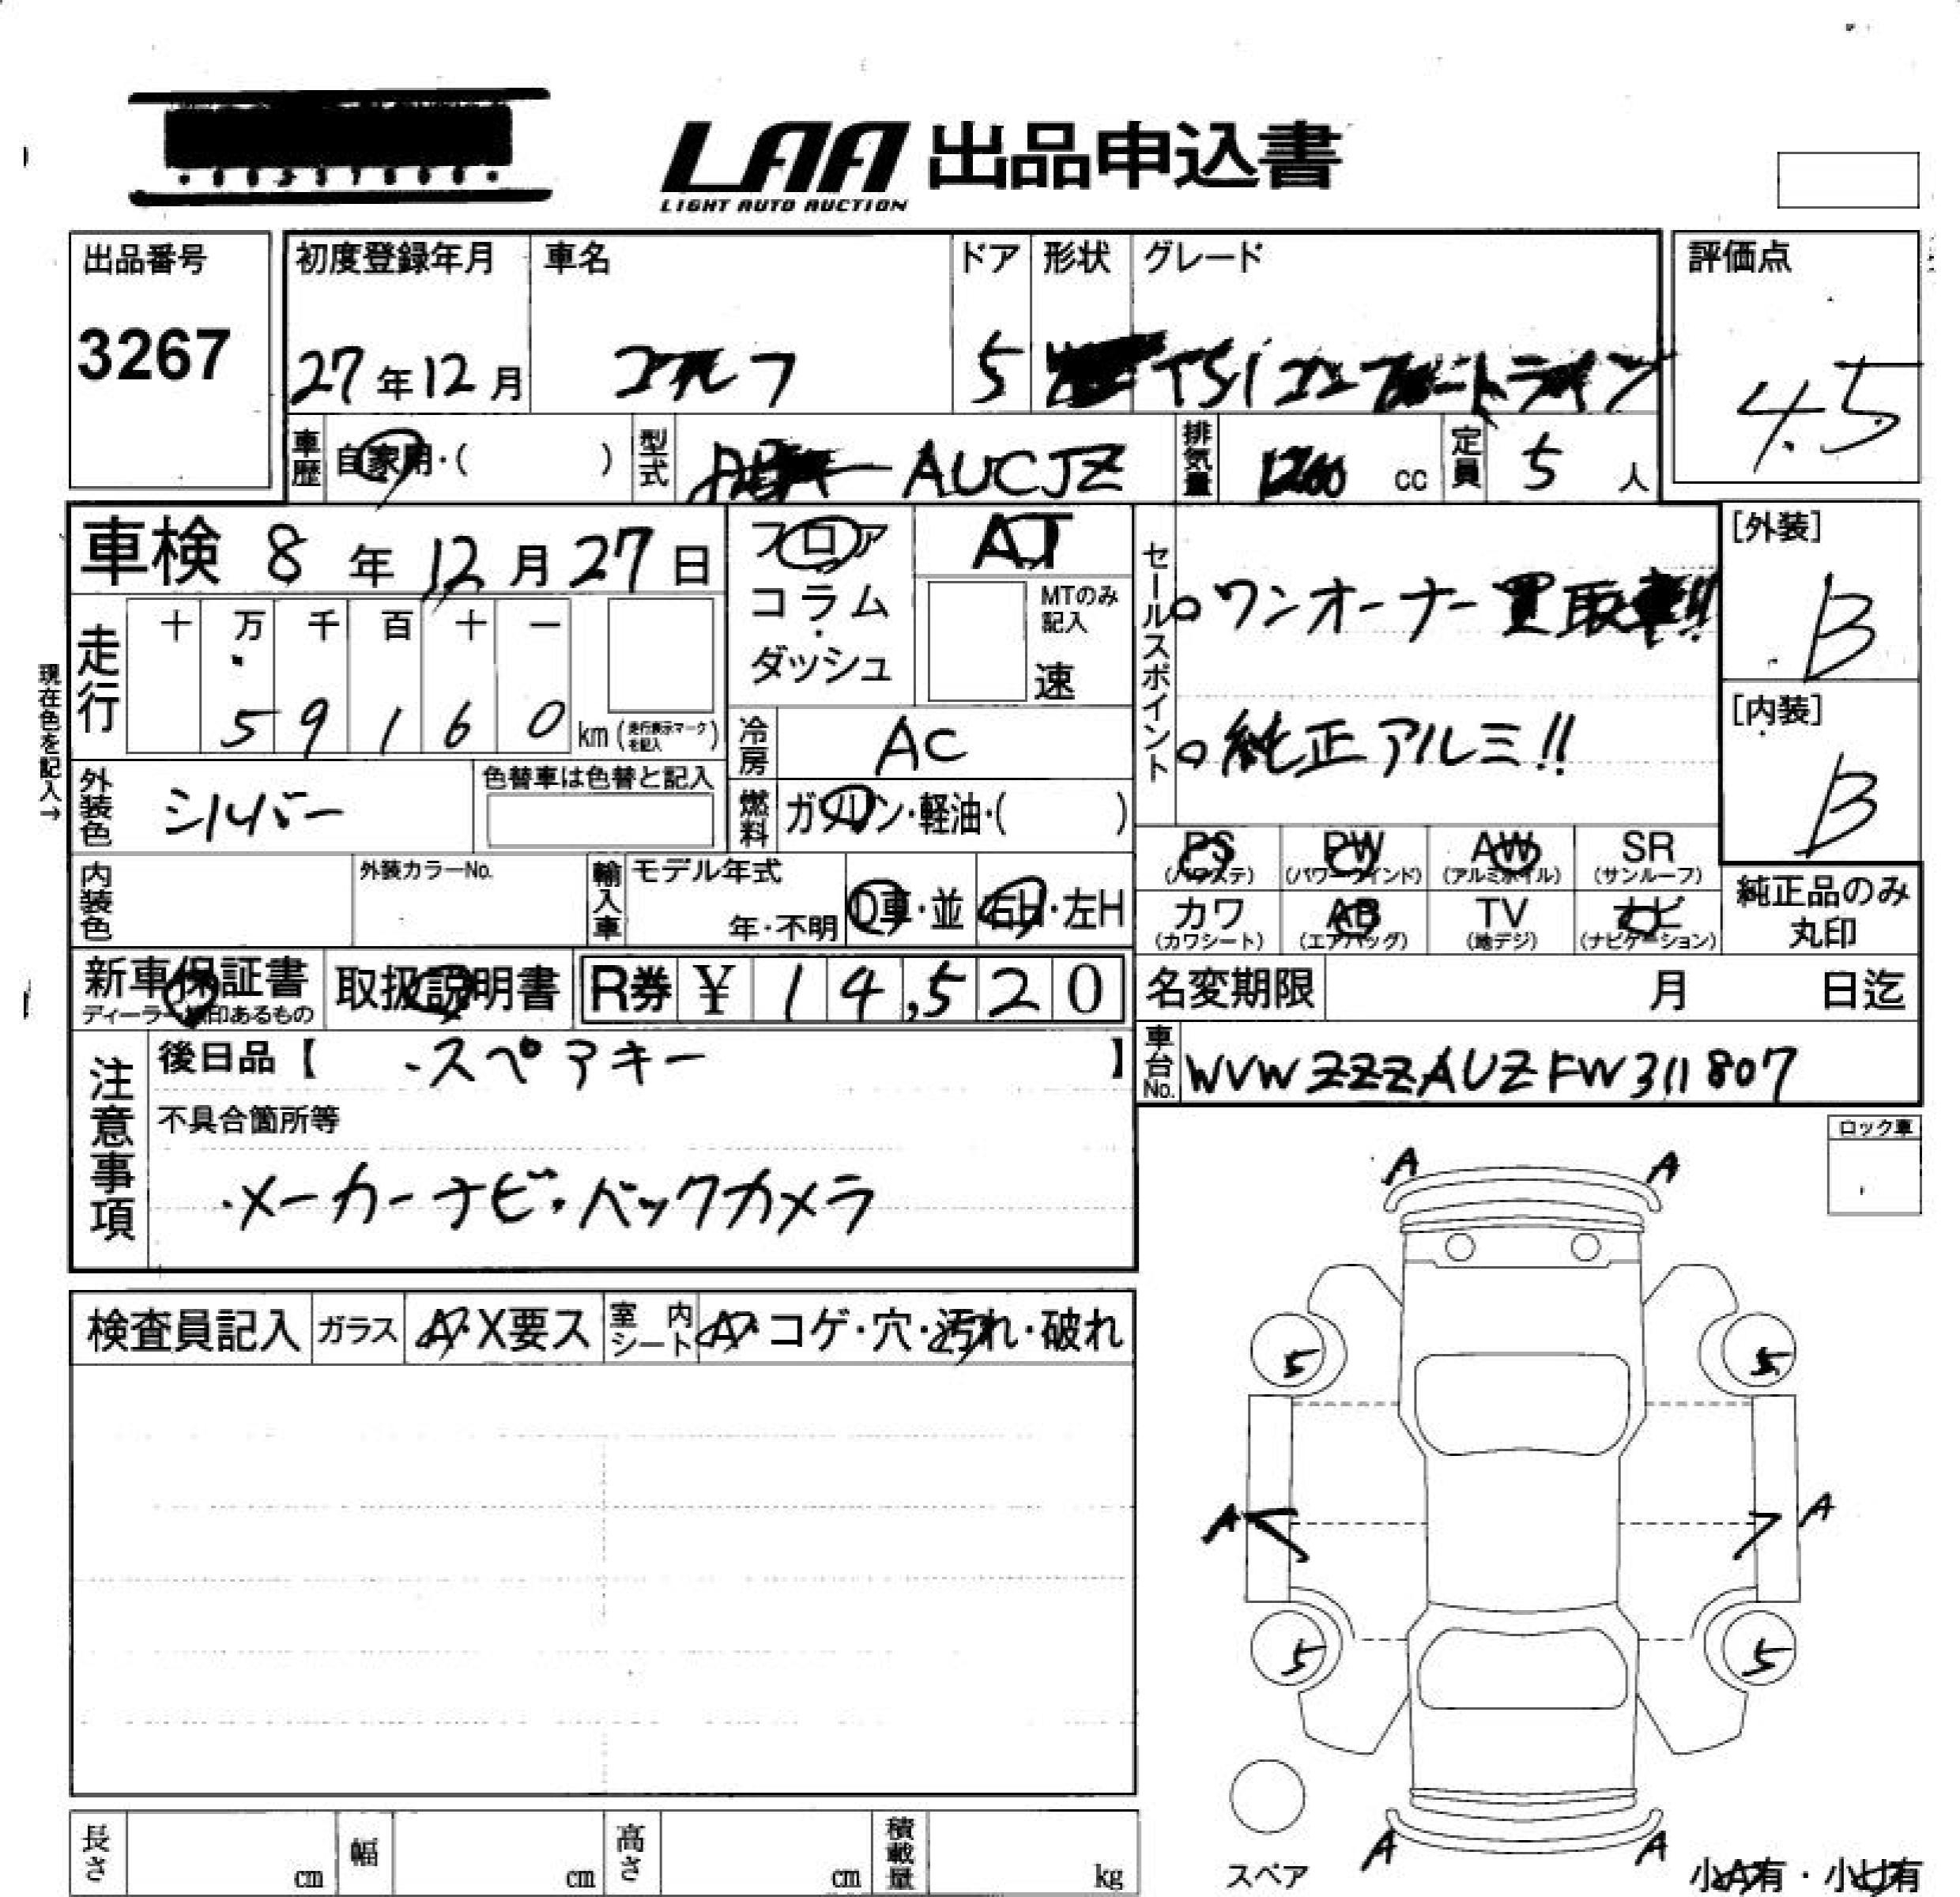 LAA 出品申込書
LIGHT AUTO AUCTION
出品番号
3267
初度登録年月
27年12月
車名
ゴルフ
ドア
5
形状
グレード
TSIコンフォートライン
評価点
4.5
車歴
自家用・( )
型式
AUCJZ
排気量
cc
定員
5人
車検 8年12月27日
現在色を記入→
走行
十 万 千 百 十 一
5 9 1 6 0 km (走行表示マークを記入)
外装色
シルバー
色替車は色替と記入
内装色
外装カラーNo.
フロア
コラム・
ダッシュ
AT
MTのみ記入
速
冷房
AC
燃料
ガソリン・軽油・( )
輸入車
モデル年式
年・不明
D車・並
右H・左H
セールスポイント
○ワンオーナー買取車!!
○純正アルミ!!
[外装]
B
[内装]
B
PS (パワステ)
PW (パワーウインド)
AW (アルミホイル)
SR (サンルーフ)
カワ (カワシート)
AB (エアバッグ)
TV (地デジ)
ナビ (ナビゲーション)
純正品のみ
丸印
新車保証書
取扱説明書
R券 ¥ 14,520
名変期限 月 日迄
車台No.
WVWZZZAUZFW311807
注意事項
後日品【 ・スペアキー 】
不具合箇所等
・メーカーナビ・バックカメラ
検査員記入
ガラス
A・X要ス
室内シート
A・コゲ・穴・汚れ・破れ
ロック車
A A
5 5
A A
5 5
A A
スペア
小A有・小U有
長さ cm
幅 cm
高さ cm
積載量 kg